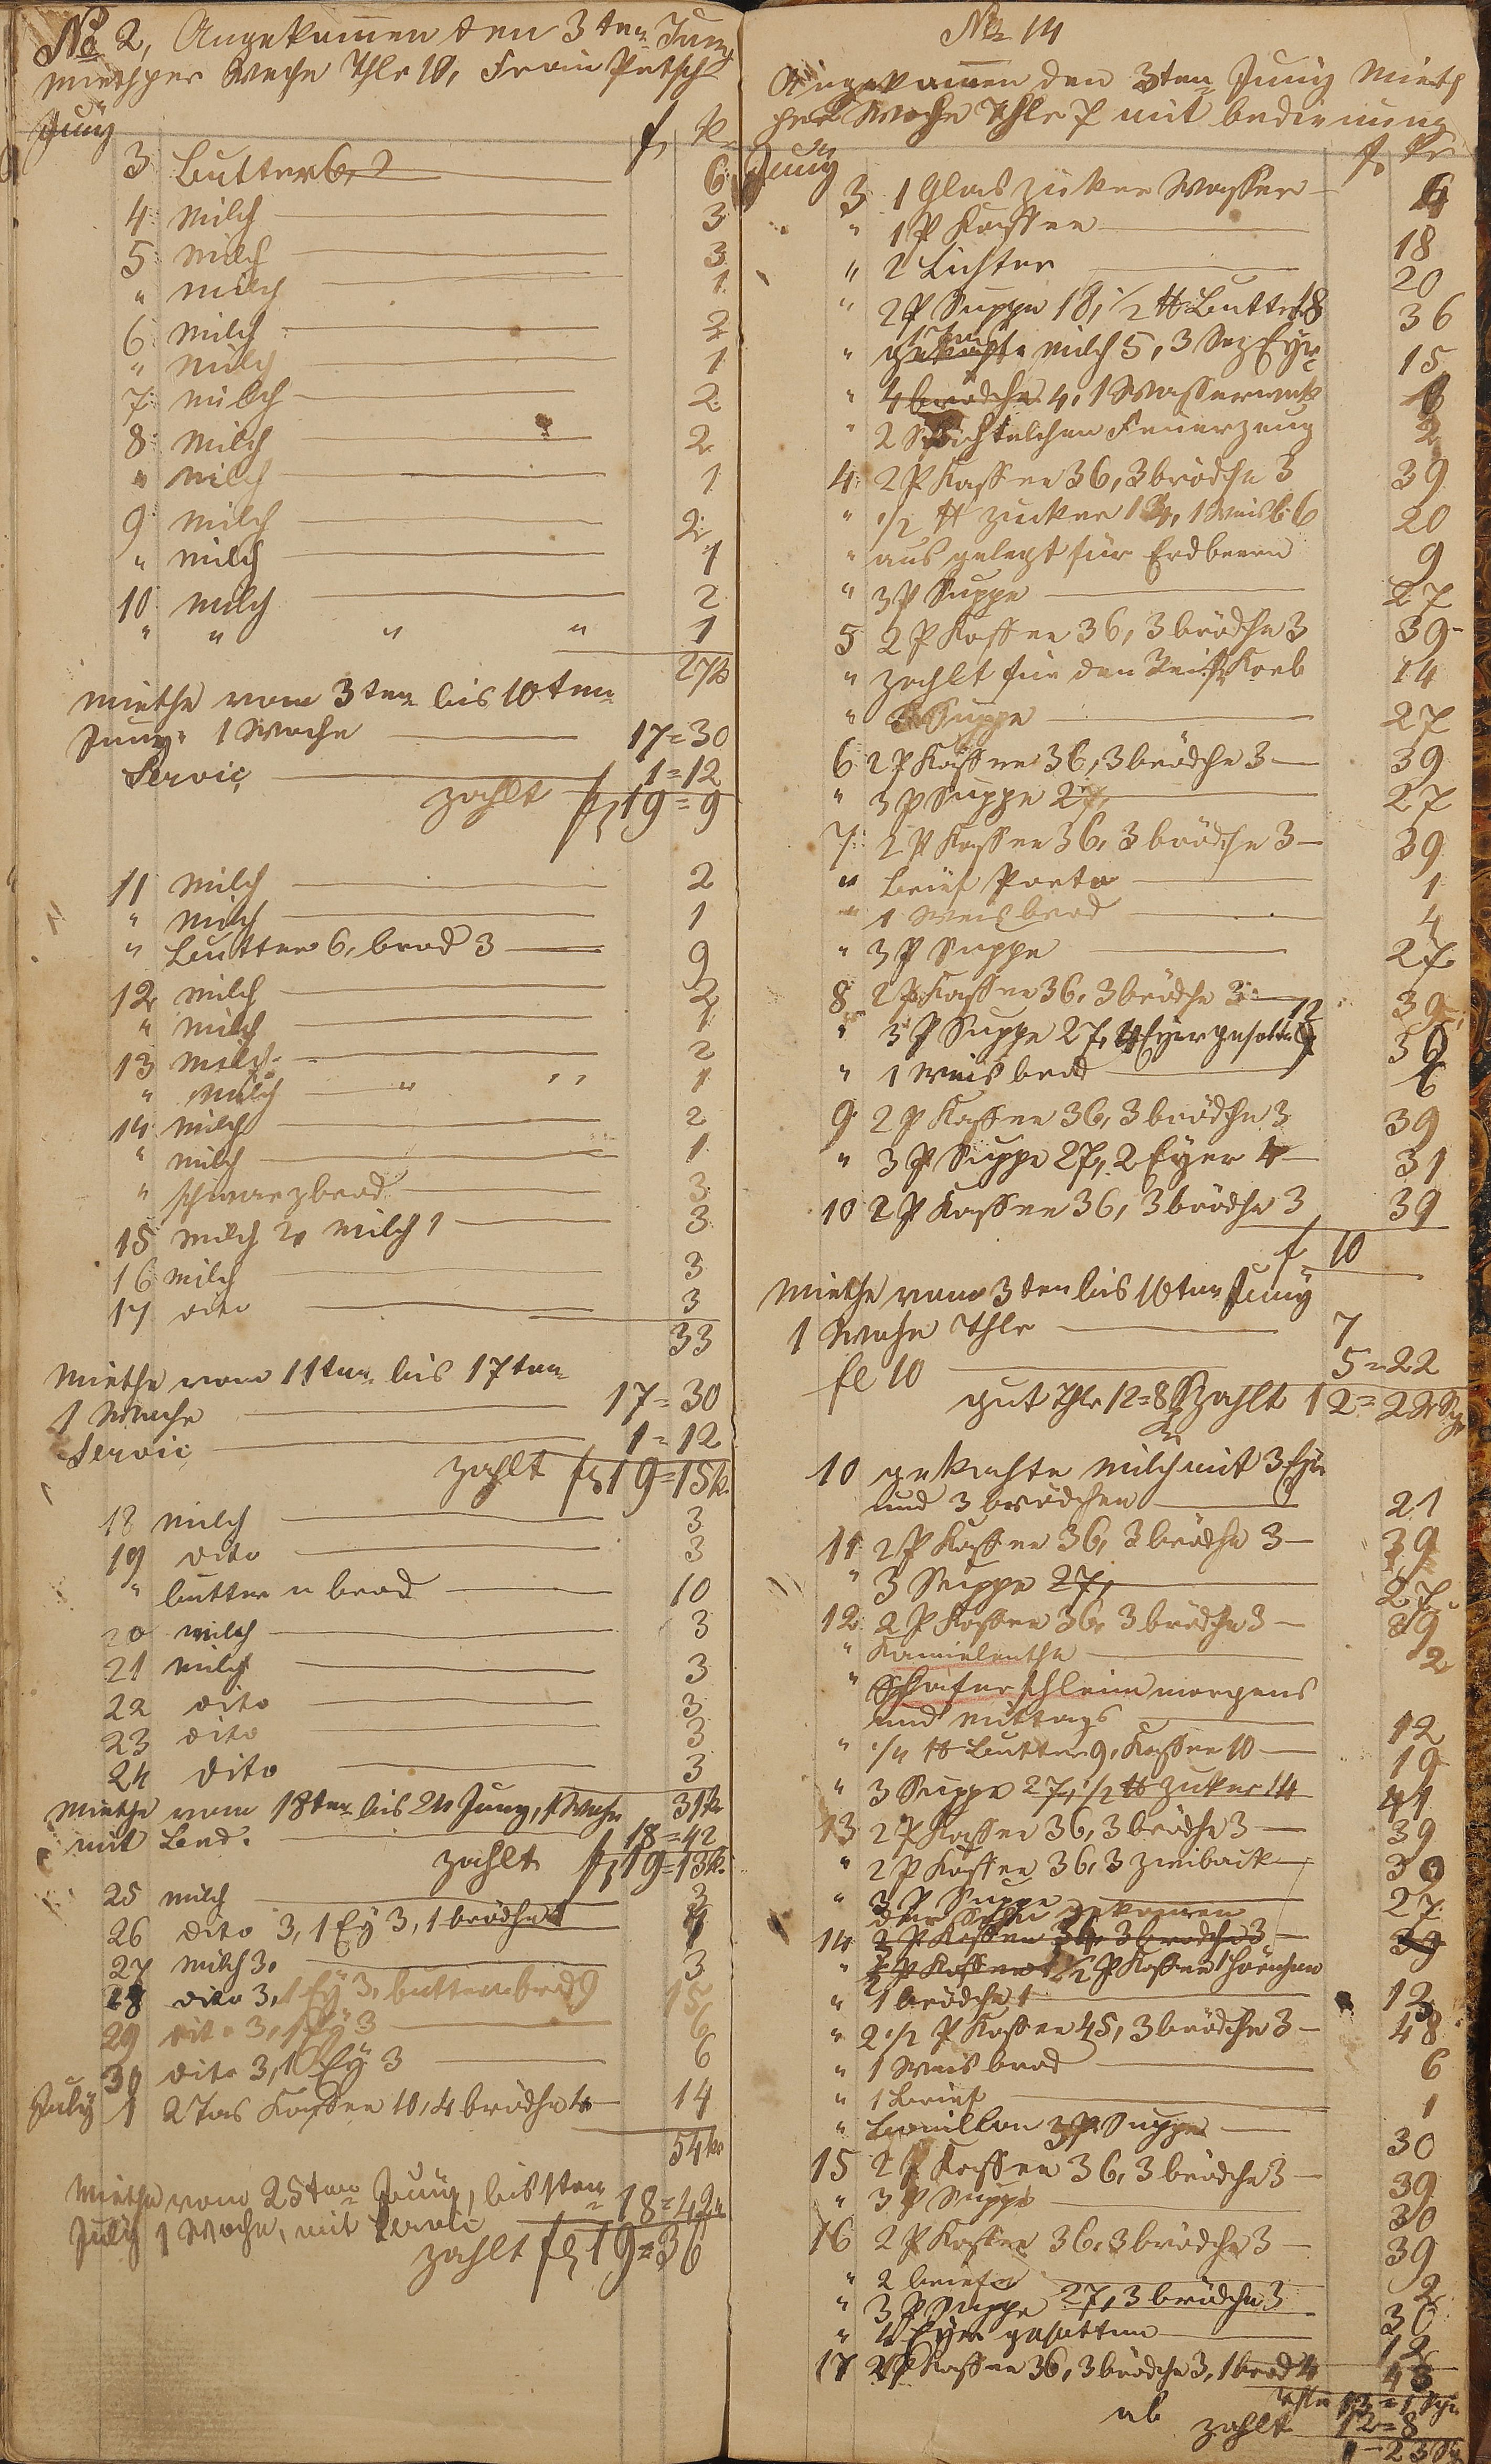 No 2, Angekommen den 3ten Juny
Mieth per Woche Thlr 10, Frau Petsch
Juny f, k
3 Butter 6, 6
4 Milch 3
5 Milch 3
" Milch 1
6 Milch 2
" Milch 1
7 Milch 2
8 Milch 2
" Milch 1
9 Milch 2
" Milch 1
10 Milch 2
" " " " 1
27k
Miethe vom 3ten bis 10ten
Juny 1 Woche 17=30
Servic 1=12
zahlt fl 19=9
11 Milch 2
" Milch 1
" Butter 6, brod 3 9
12 Milch 2
" Milch 1
13 Milch 2
" Milch " " 1
14 Milch 2
" Milch 1
" schwarzbrod 3
15 Milch 2, Milch 1 3
16 Milch 3
17 dito 3
33
Miethe vom 11ten bis 17ten
1 Woche 17=30
Servic 1=12
zahlt fl 19=15k
18 Milch 3
19 dito 3
" butter u brod 10
20 Milch 3
21 Milch 3
22 dito 3
23 dito 3
24 dito 3
31k
Miethe vom 18ten bis 24 Juny, 1 Woche
mit Bed. 18=42
zahlt fl 19=13k
25 Milch 3
26 dito 3, 1 Ey 3, 1 brödche 1 7
27 Milch 3. 3
28 dito 3, 1 Ey 3, butter brod 9 15
29 dito 3, 1 Ey 3 6
30 dito 3, 1 Ey 3 6
July 1 2 Tas Kaffee 10, 4 brödche 4 14
54k
Miethe vom 25ten Juny, bis 1ten
July 1 Woche, mit Servic 18=42
zahlt fl 19=36
No 14
Angekommen den 3ten Juny Mieth
per Woche Thlr 7 mit bedienung
Juny f, kr
3 1 Glas zucker Wasser 6
" 1 P Kaffee 18
" 2 Lichter 20
" 2 P Suppe 18, 1/2 ℔ Butter 18 36
" Milch 5, 3 Eyer 15
" 4 brödche 4, 1 Wasserweck
" 2 Schachtelchen Feuerzeug 2
4 2 P Kaffee 36, 3 brödche 3 39
" 1/2 ℔ zucker 14, 1 Weisb 6 20
" aus gelegt für Erdbeeren 9
" 3 P Suppe 27
5 2 P Kaffee 36, 3 brödche 3 39
" zahlt für den Korb 14
" 3 Suppe 27
6 2 P Kaffee 36, 3 brödche 3 39
" 3 P Suppe 27, 27
7 2 P Kaffee 36, 3 brödche 3 39
" brief Porto 1
" 1 Weisbrod 4
" 3 P Suppe 27
8 2 P Kaffee 36, 3 brödche 3 39
" 3 P Suppe 27, 4 Eyer gesotte
" 1 Weisbrod 6
9 2 P Kaffee 36, 3 brödche 3 39
" 3 P Suppe 27, 2 Eyer 4 31
10 2 P Kaffee 36, 3 brödche 3 39
f 10
Miethe vom 3ten bis 10ten Juny
1 Woche Thlr 7
fl 10 5=22
gut Thlr 12=8 zahlt 12=22 Sgr
10 gekochte Milch mit 3 Eyer
und 3 brödchen 21
11 2 P Kaffee 36, 3 brödche 3 39
" 3 Suppe 27, 27
12 2 P Kaffee 36, 3 brödche 3 39
" Kamielenthe 2
" Haferschleim morgens
und Mittags 12
" 1/4 ℔ Butter 9, Kaffee 10 19
" 3 Suppe 27, 1/2 ℔ zucker 14 41
13 2 P Kaffee 36, 3 brödche 3 39
" 2 P Kaffee 36, 3 zwiback 39
" 3 P Suppe 27
gekommen
14 2 P Kaffee 36, 3 brödche 3 39
" 1/2 P Kaffee 1 Hörnchen
" 1 brödche 1
" 2 1/2 P Kaffee 45, 3 brödche 3 48
" 1 Weisbrod 6
" 1 Brief 1
" Bouillon 3 P Suppe 30
15 2 P Kaffee 36, 3 brödche 3 39
" 3 P Suppe 30
16 2 P Kaffee 36, 3 brödche 3 39
" 2 briefe 2
" 3 P Suppe 27, 3 brödche 3 30
" 4 Eyer gesotten 12
17 2 P Kaffee 36, 3 brödche 3, 1 brod 4 43
ab 12=8
zahlt 1=23 Sgr